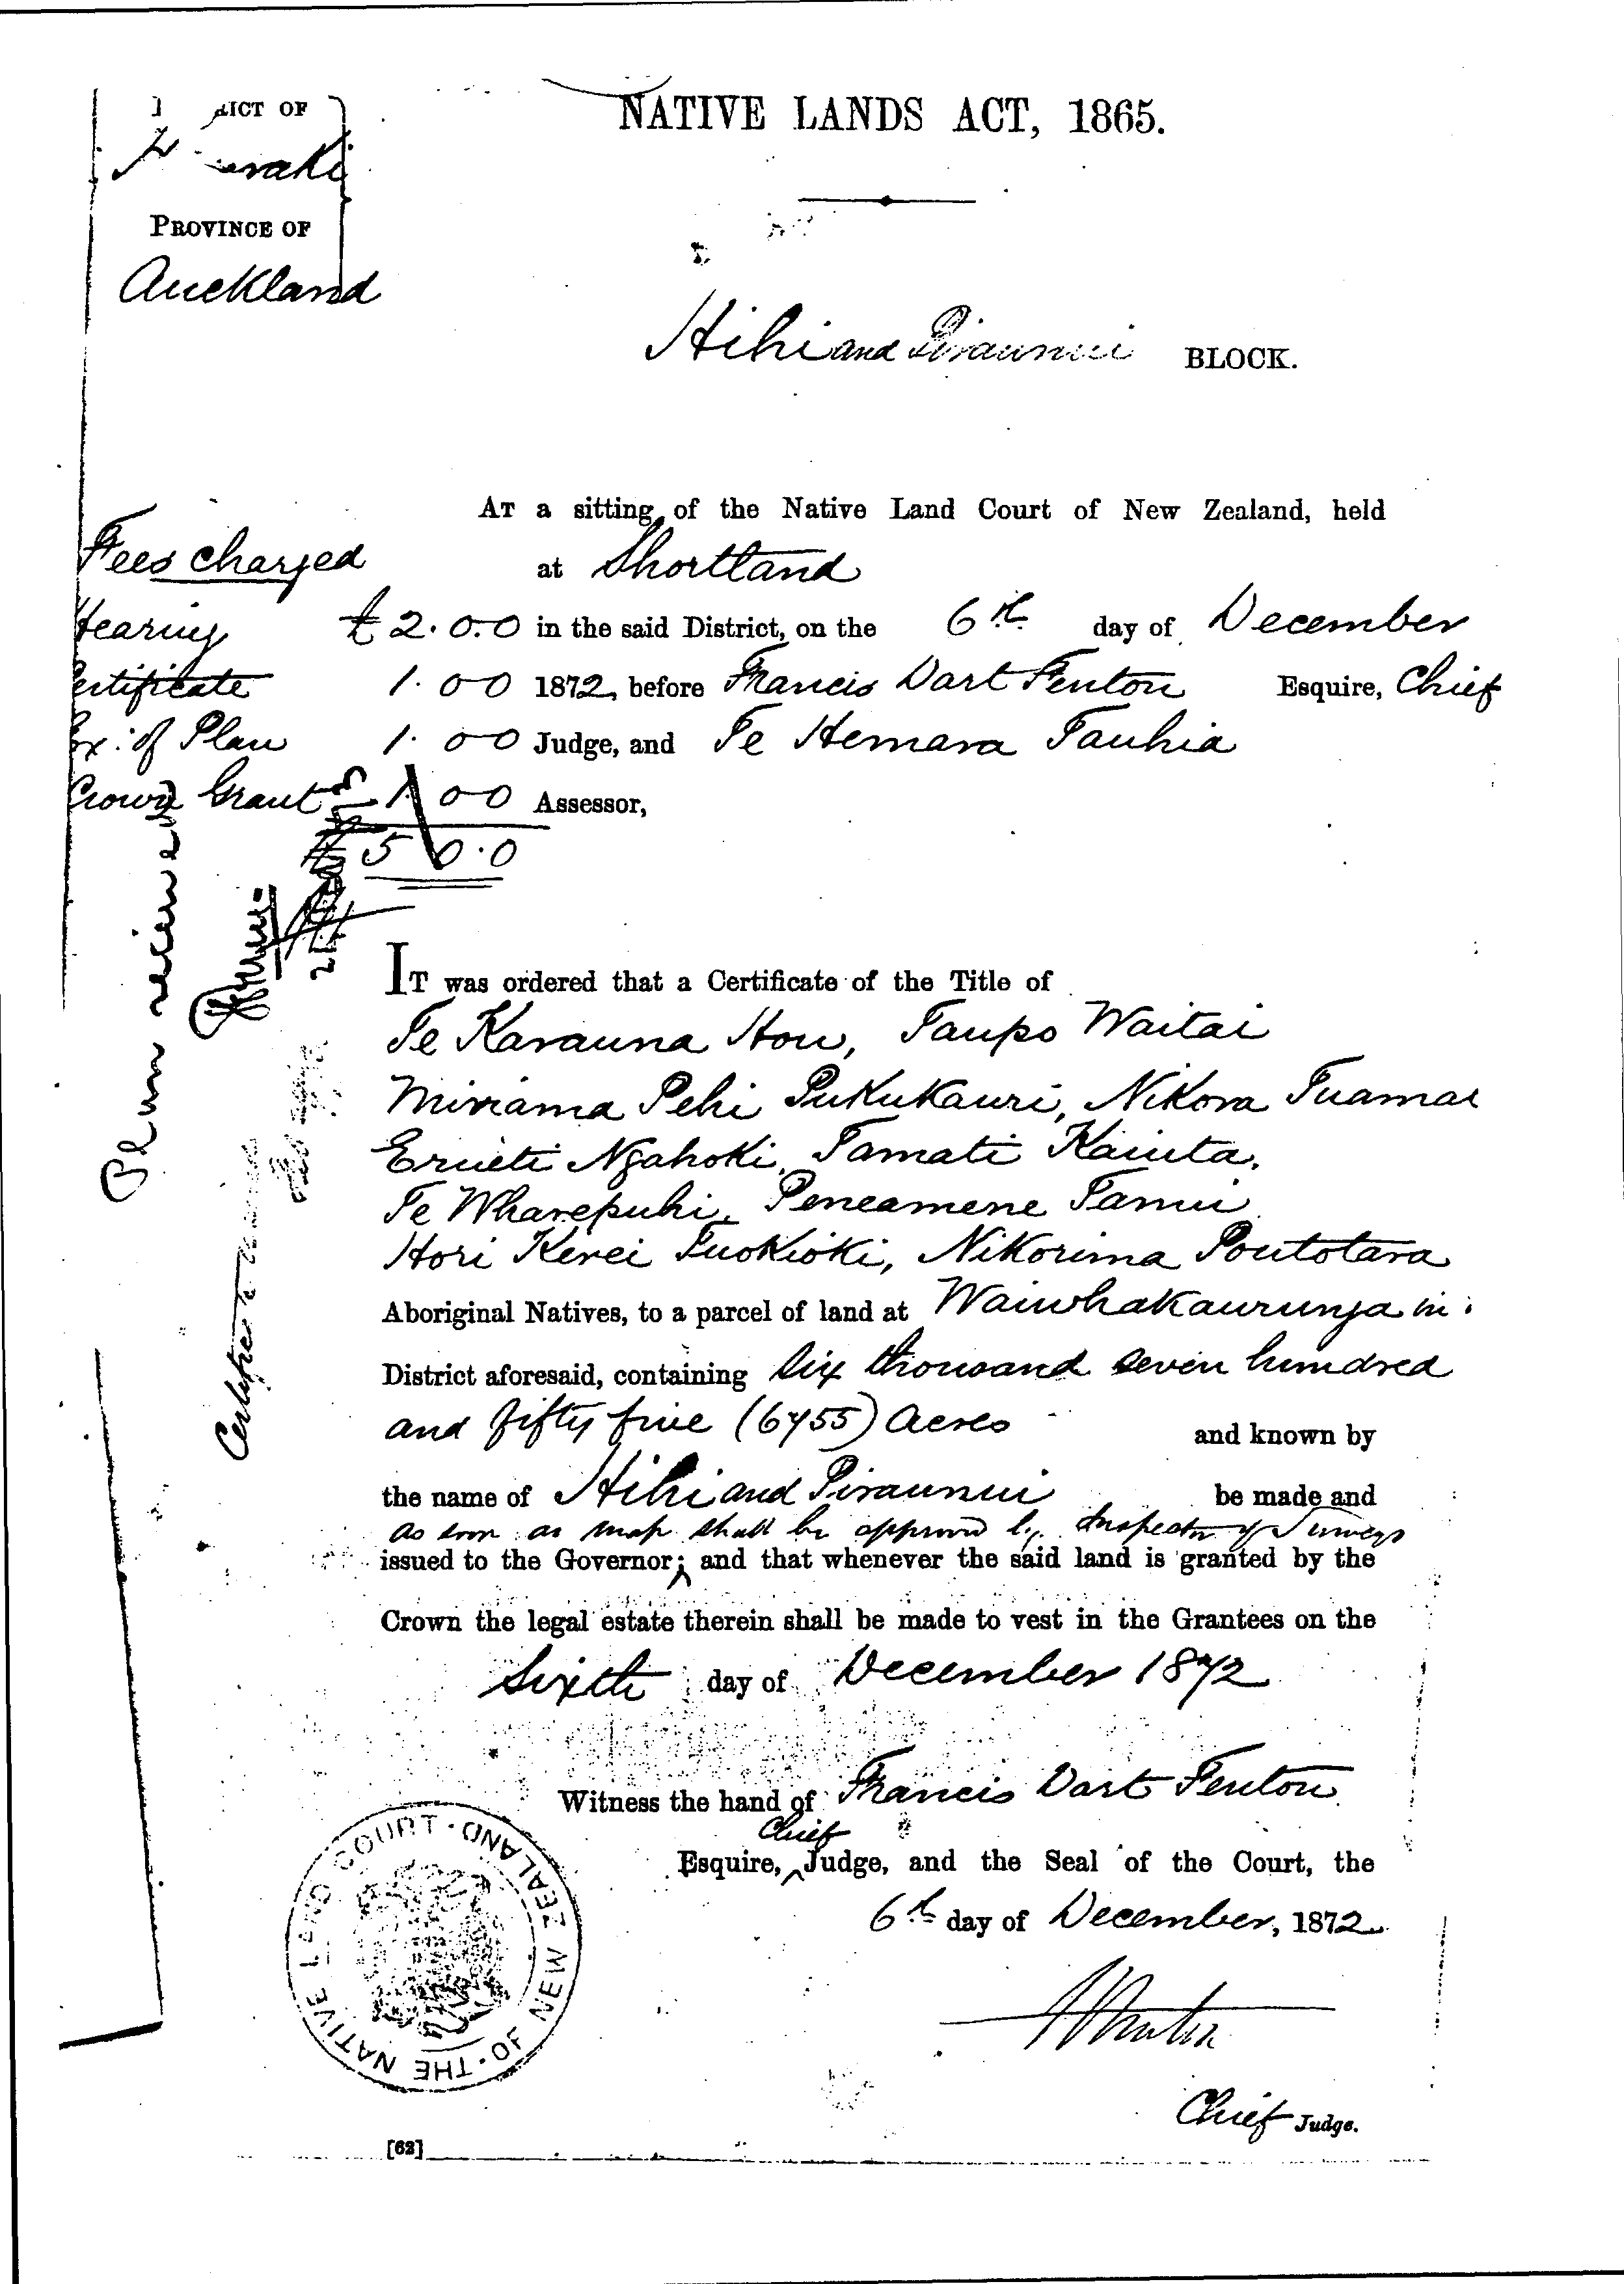 NATIVE LANDS ACT, 1865.
RICT OF
PROVINCE OF
Auckland
Hihi and Piraunui BLOCK.
AT a sitting of the Native Land Court of New Zealand, held
at Shortland
in the said District, on the 6th day of December
1872, before Francis Dart Fenton Esquire, Chief
Judge, and Te Hemara Tauhia
Assessor,
Fees charged
Hearing £2.0.0
Certificate 1.00
Ex: of Plan 1.00
Crown Grant 1.00
£5 0.0
Plan received
IT was ordered that a Certificate of the Title of
Te Karauna Hou, Taupo Waitai
Miriama Pehi Pukukauri, Nikora Tuamae
Erueti Ngahoki, Tamati Kaiuta,
Te Wharepuhi, Peneamene Tanui
Hori Kerei Tuokioki, Nikorima Poutotara
Aboriginal Natives, to a parcel of land at Waiwhakaurunga in
District aforesaid, containing Six thousand seven hundred
and fifty five (6755) Acres and known by
the name of Hihi and Piraunui be made and
as soon as map shall be approved by Inspector of Surveys
issued to the Governor; and that whenever the said land is granted by the
Crown the legal estate therein shall be made to vest in the Grantees on the
Sixth day of December 1872
Witness the hand of Francis Dart Fenton
Chief
Esquire, Judge, and the Seal of the Court, the
6th day of December, 1872
Chief Judge.
THE NATIVE LAND COURT · OF NEW ZEALAND ·
[62]